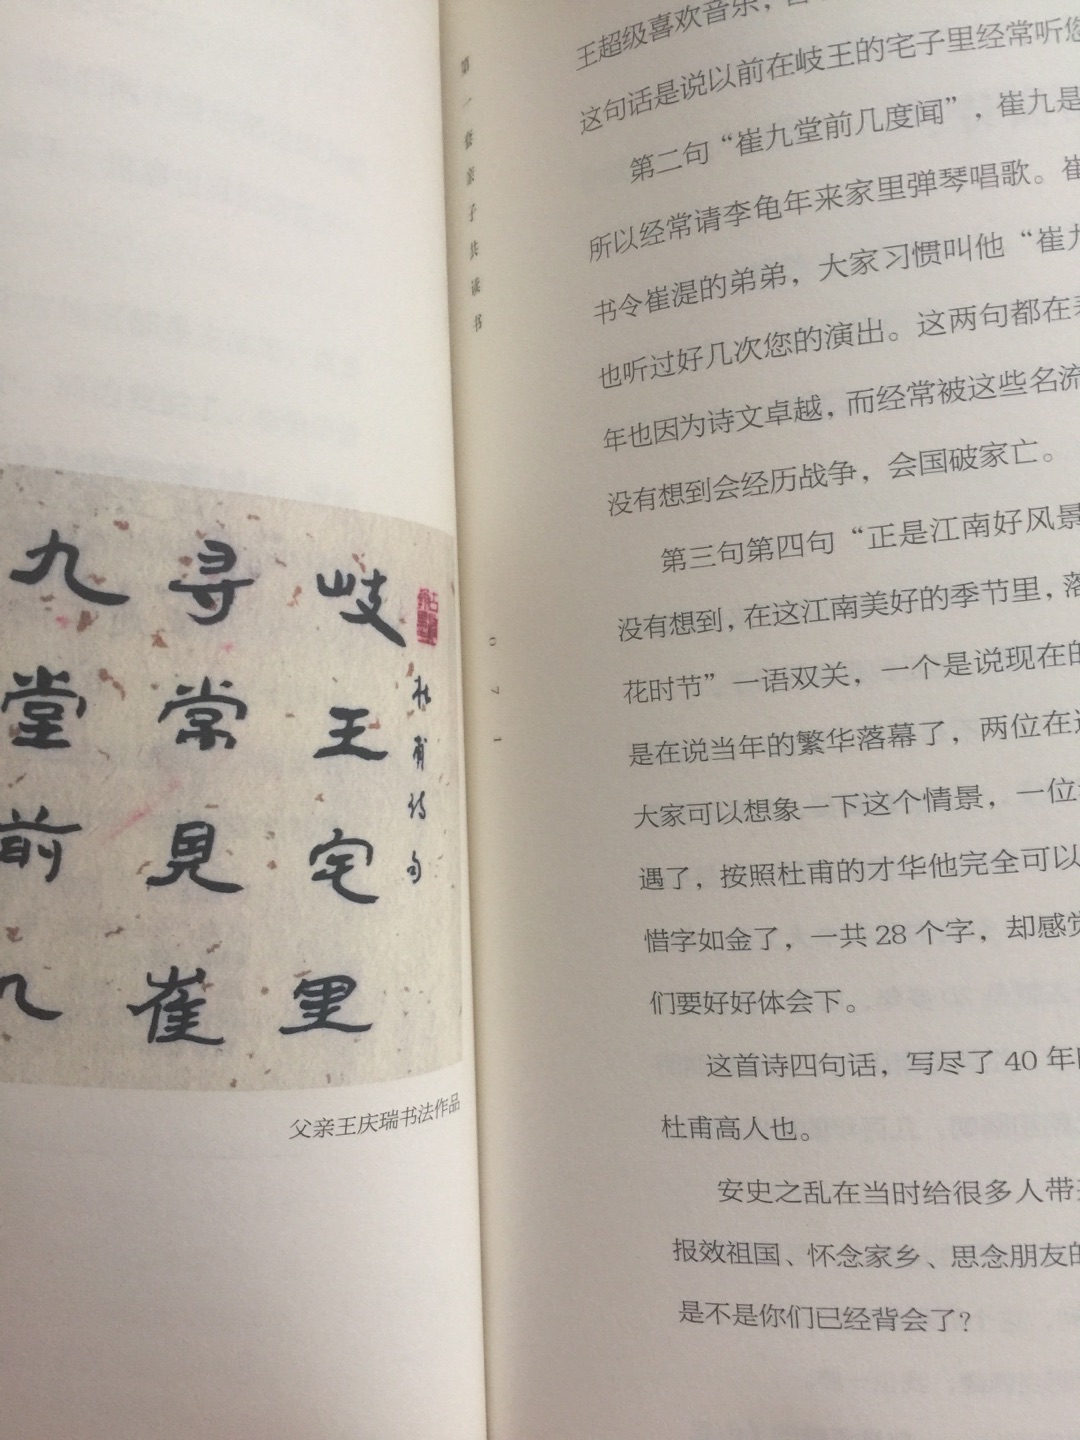 岐王宅里
寻常見崔
九堂前几
杜甫诗句
父亲王庆瑞书法作品
第一套亲子共读书
071
王超级喜欢音乐，
这句话是说以前在岐王的宅子里经常听您
第二句“崔九堂前几度闻”，崔九是
所以经常请李龟年来家里弹琴唱歌。崔
书令崔湜的弟弟，大家习惯叫他“崔九
也听过好几次您的演出。这两句都在表
年也因为诗文卓越，而经常被这些名流
没有想到会经历战争，会国破家亡。
第三句第四句“正是江南好风景
没有想到，在这江南美好的季节里，落
花时节”一语双关，一个是说现在的
是在说当年的繁华落幕了，两位在这
大家可以想象一下这个情景，一位
遇了，按照杜甫的才华他完全可以
惜字如金了，一共 28 个字，却感觉
们要好好体会下。
这首诗四句话，写尽了 40 年
杜甫高人也。
安史之乱在当时给很多人带来
报效祖国、怀念家乡、思念朋友的
是不是你们已经背会了？